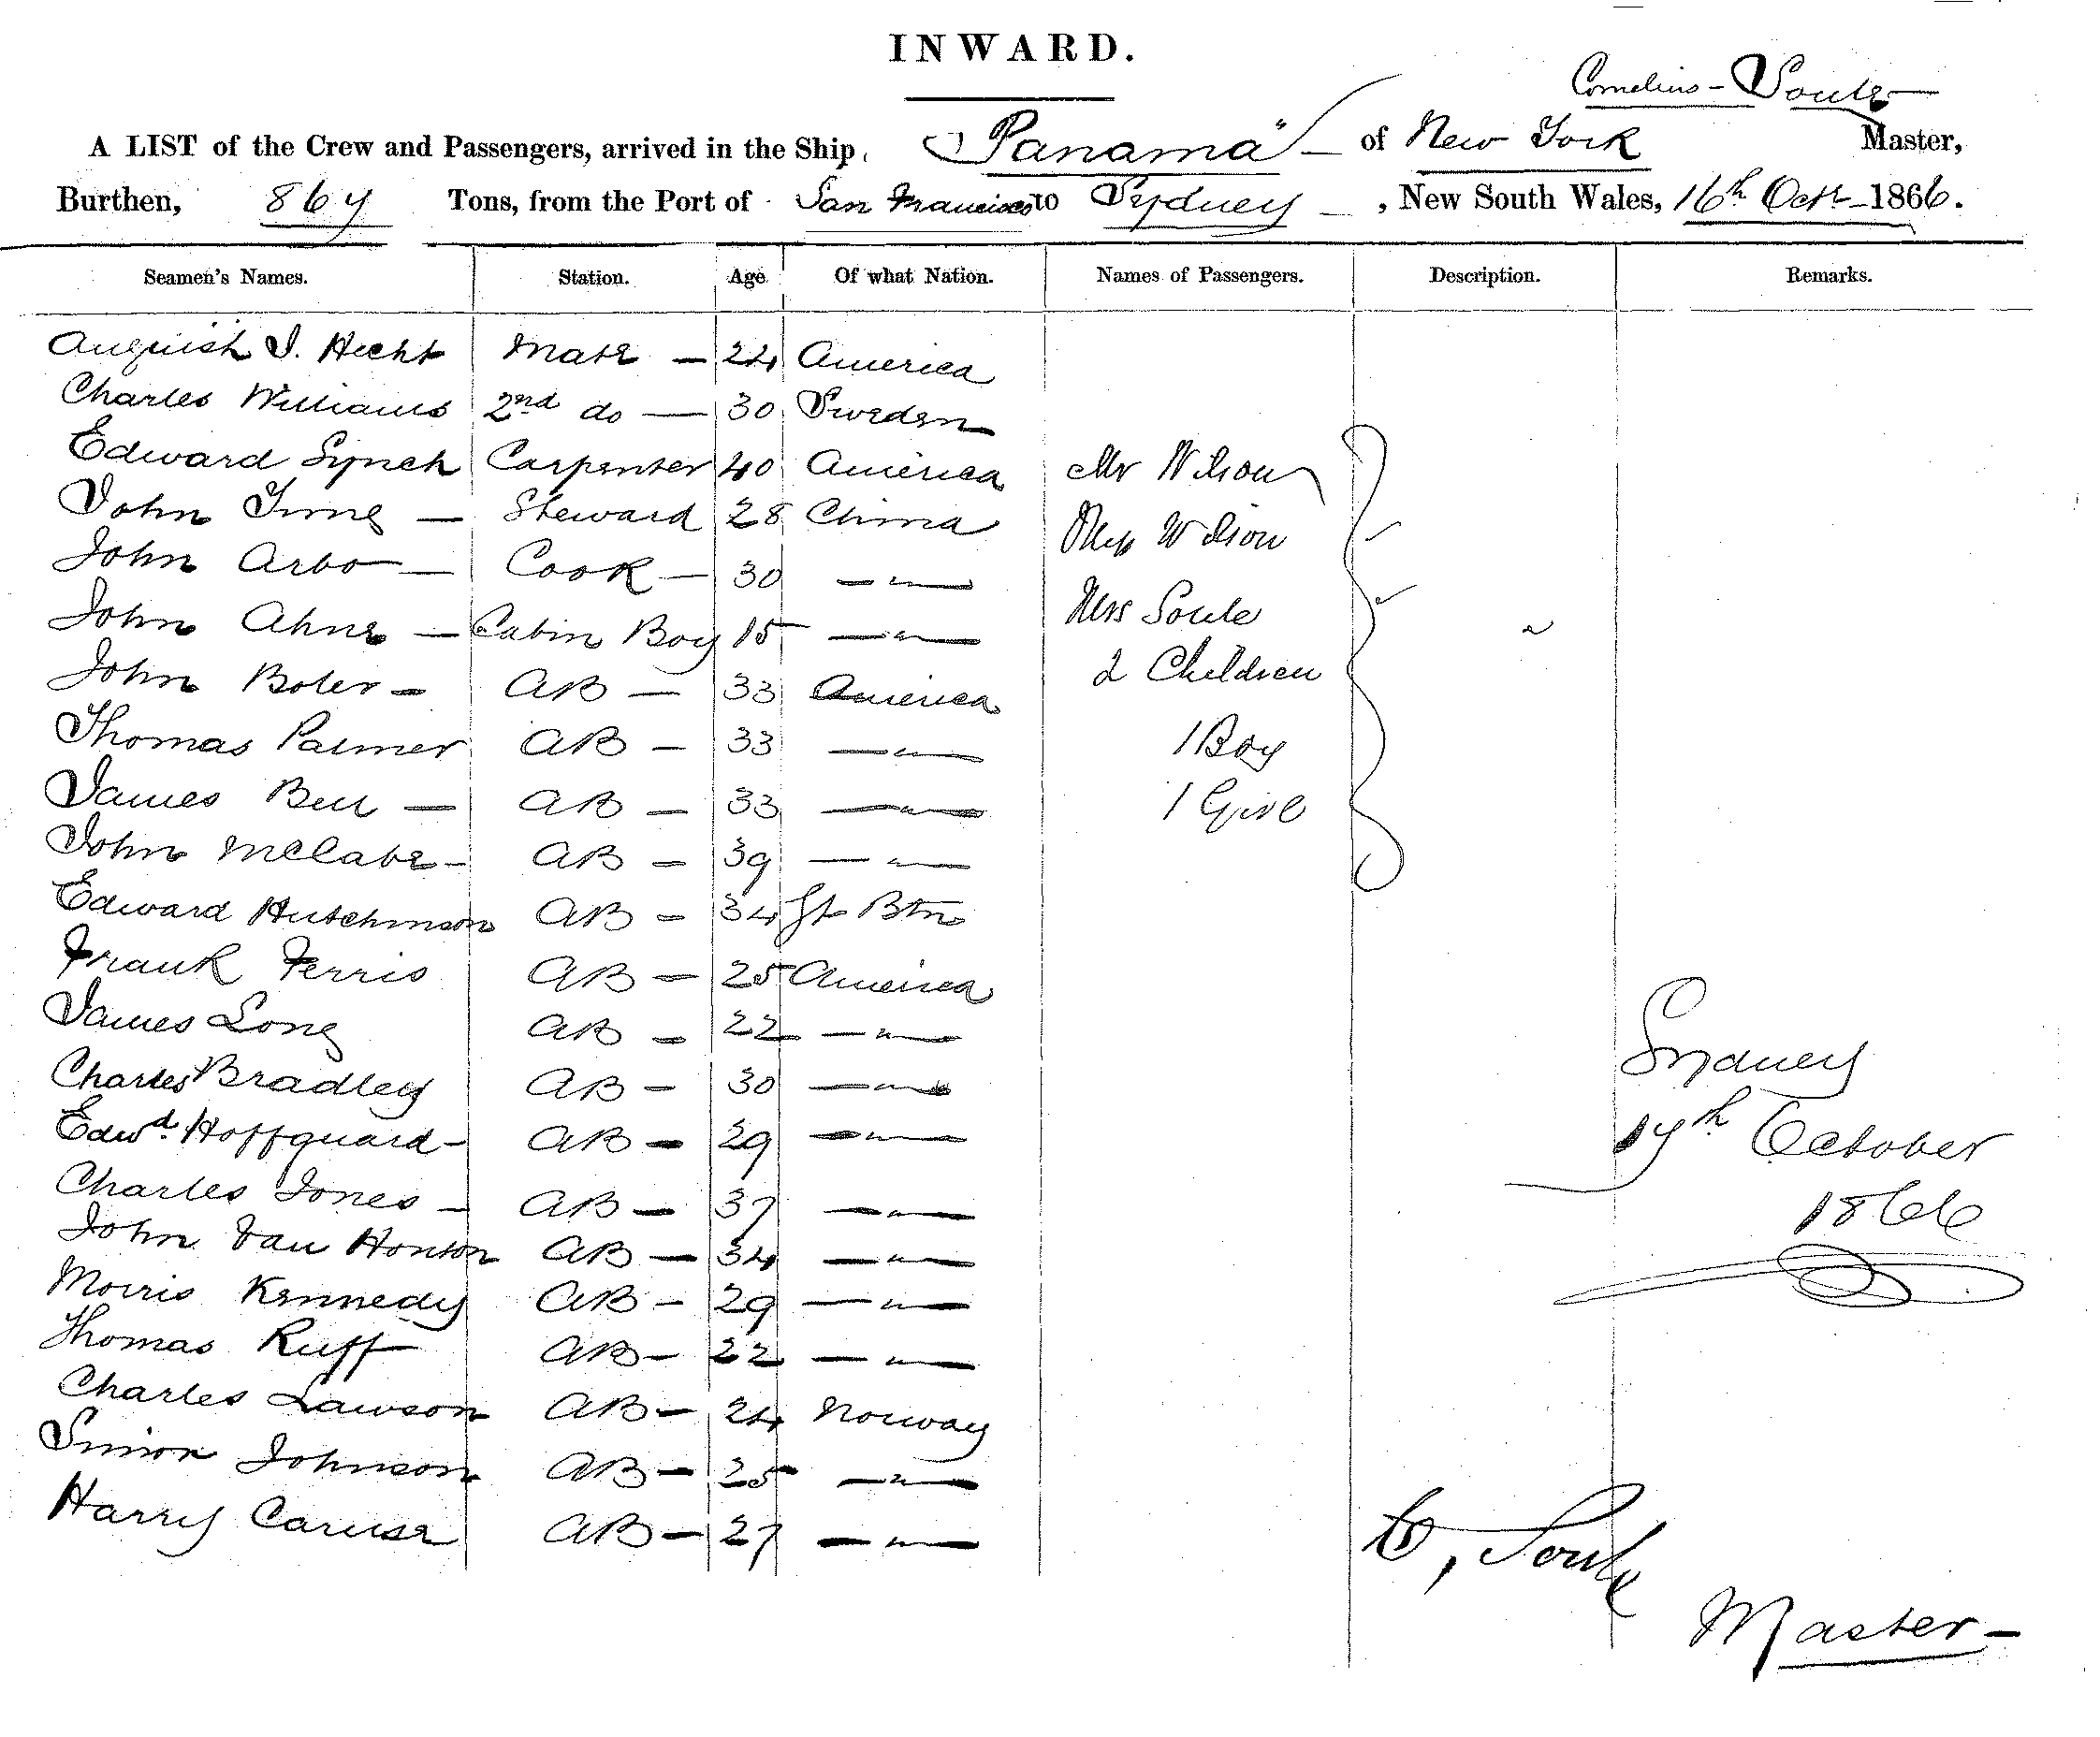 INWARD.
Cornelius - Soule
A LIST of the Crew and Passengers, arrived in the Ship, "Panama" of New York Master,
Burthen, 867 Tons, from the Port of San Francisco to Sydney, New South Wales, 16th Octr 1866.
Seamen's Names. Station. Age Of what Nation. Names of Passengers. Description. Remarks.
J. Hecht Mate — 24 America
Charles Williams 2nd do — 30 Sweden
Edward Lynch Carpenter 40 America Mr Wilson
John — Steward 28 China Wilson
John Arbo — Cook — 30 — " —
John Ahne — Cabin Boy 15 — " — Mrs Soule
John Boler — AB — 33 America 2 Children
Thomas Palmer AB — 33 — " — 1 Boy
James Bell — AB — 33 — " — 1 Girl
John McCabe — AB — 39 — " —
Edward Hutchinson AB — 34 Gt Btn
Frank Ferris AB — 25 America
James Long AB — 22 — " —
Charles Bradley AB — 30 — " —
Edwd Hoffguard — AB — 29 — " —
Charles Jones — AB — 37 — " —
John Van Honton AB — 34 — " —
Morris Kennedy AB — 29 — " —
Thomas Ruff AB — 22 — " —
Charles Lawson AB — 24 Norway
Simon Johnson AB — 25 — " —
Harry Caruse AB — 27 — " —
Sydney
17th October
1866
C, Soule
Master —